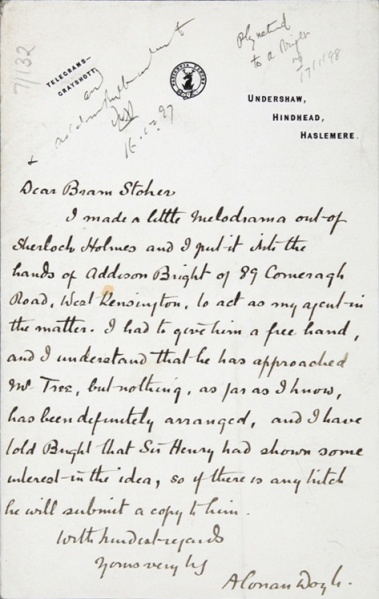 7/132
TELEGRAMS—
GRAYSHOTT.
16.12.97
Play returned
to A Bright
17/1/98
UNDERSHAW,
HINDHEAD,
HASLEMERE.
Dear Bram Stoker
I made a little Melodrama out of
Sherlock Holmes and I put it into the
hands of Addison Bright of 89 Comeragh
Road, West Kensington, to act as my agent in
the matter. I had to give him a free hand,
and I understand that he has approached
Mr Tree, but nothing, as far as I know,
has been definitely arranged, and I have
told Bright that Sir Henry had shown some
interest in the idea, so if there is any hitch
he will submit a copy to him.
With kindest regards
Yours very truly
A Conan Doyle.